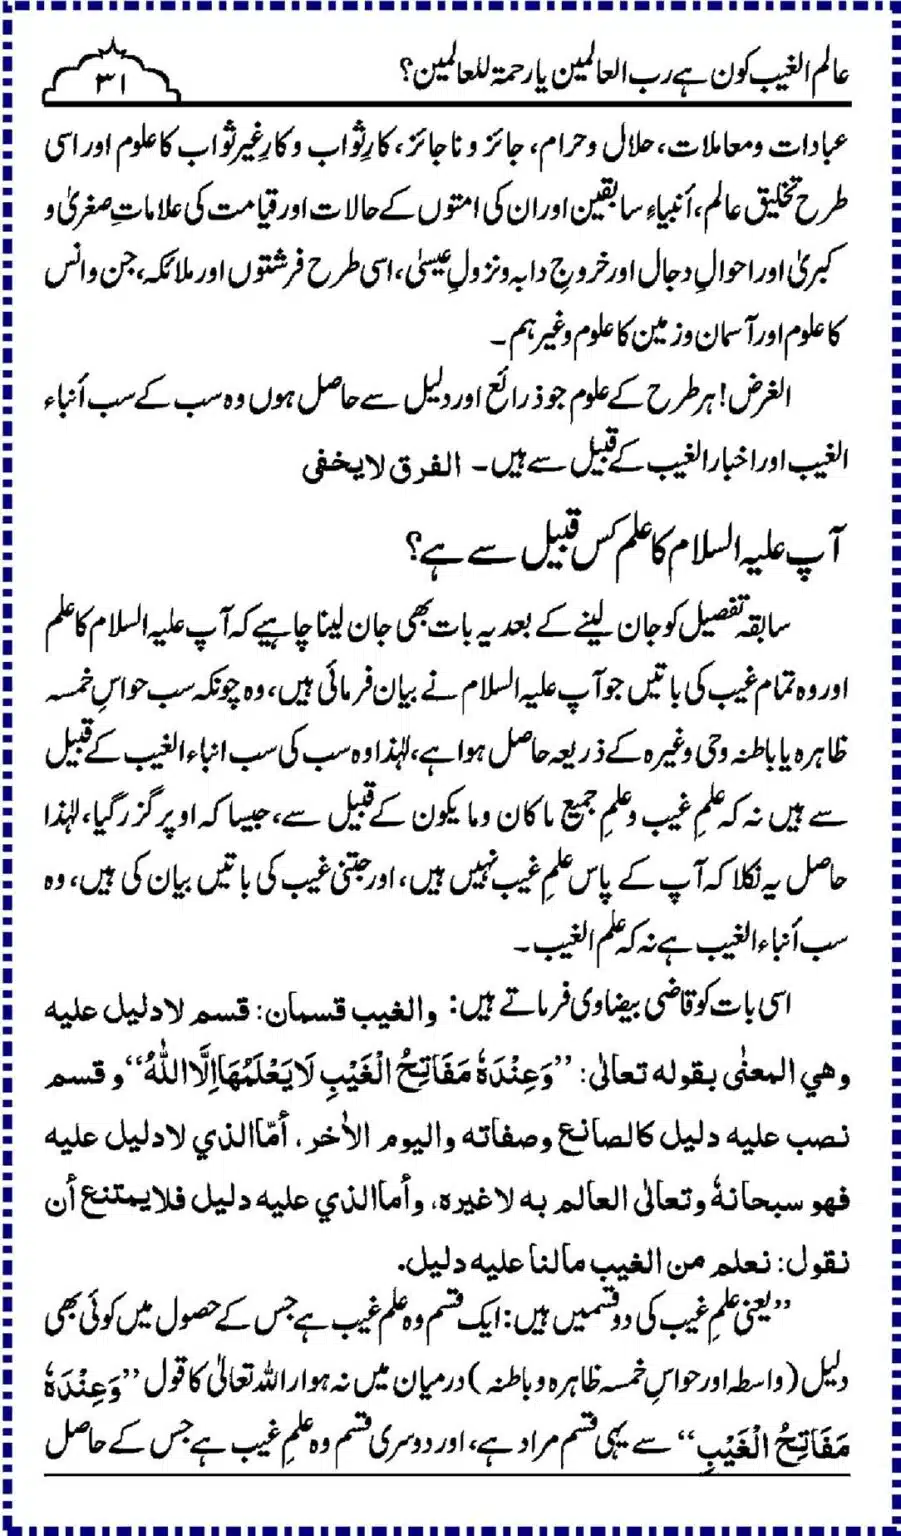 عالم الغیب کون ہے رب العالمین یا رحمۃ للعالمین؟
۳۱
عبادات ومعاملات، حلال وحرام، جائز و ناجائز، کارِثواب وکارِغیرثواب کا علوم اور اسی
طرح تخلیق عالم، أنبیاءِ سابقین اور ان کی امتوں کے حالات اور قیامت کی علاماتِ صغریٰ و
کبریٰ اور احوالِ دجال اور خروجِ دابہ ونزولِ عیسیٰ، اسی طرح فرشتوں اور ملائکہ، جن وانس
کا علوم اور آسمان وزمین کا علوم وغیرہم۔
الغرض! ہر طرح کے علوم جو ذرائع اور دلیل سے حاصل ہوں وہ سب کے سب أنباء
الغیب اور اخبار الغیب کے قبیل سے ہیں۔ الفرق لایخفی
آپ علیہ السلام کا علم کس قبیل سے ہے؟
سابقہ تفصیل کو جان لینے کے بعد یہ بات بھی جان لینا چاہیے کہ آپ علیہ السلام کا علم
اور وہ تمام غیب کی باتیں جو آپ علیہ السلام نے بیان فرمائی ہیں، وہ چونکہ سب حواسِ خمسہ
ظاہرہ یا باطنہ وحی وغیرہ کے ذریعہ حاصل ہوا ہے، لہٰذا وہ سب کی سب انباء الغیب کے قبیل
سے ہیں نہ کہ علمِ غیب وعلمِ جمیع ماکان وما یکون کے قبیل سے، جیسا کہ اوپر گزر گیا، لہٰذا
حاصل یہ نکلا کہ آپ کے پاس علمِ غیب نہیں ہیں، اور جتنی غیب کی باتیں بیان کی ہیں، وہ
سب أنباء الغیب ہے نہ کہ علم الغیب۔
اسی بات کو قاضی بیضاوی فرماتے ہیں: والغیب قسمان: قسم لادلیل علیه
وهي المعنٰی بقوله تعالیٰ: ’’وَعِنْدَهٗ مَفَاتِحُ الْغَیْبِ لَایَعْلَمُهَا اِلَّا اللّٰهُ‘‘ و قسم
نصب علیه دلیل کالصانع وصفاته والیوم الاٰخر، أمّاالذي لادلیل علیه
فهو سبحانهٗ وتعالیٰ العالم به لاغیره، وأماالذي علیه دلیل فلایمتنع أن
نقول: نعلم من الغیب مالنا علیه دلیل.
’’یعنی علمِ غیب کی دو قسمیں ہیں: ایک قسم وہ علمِ غیب ہے جس کے حصول میں کوئی بھی
دلیل (واسطہ اور حواسِ خمسہ ظاہرہ وباطنہ) درمیان میں نہ ہو اور اللہ تعالیٰ کا قول ’’وَعِنْدَهٗ
مَفَاتِحُ الْغَیْبِ‘‘ سے یہی قسم مراد ہے، اور دوسری قسم وہ علمِ غیب ہے جس کے حاصل